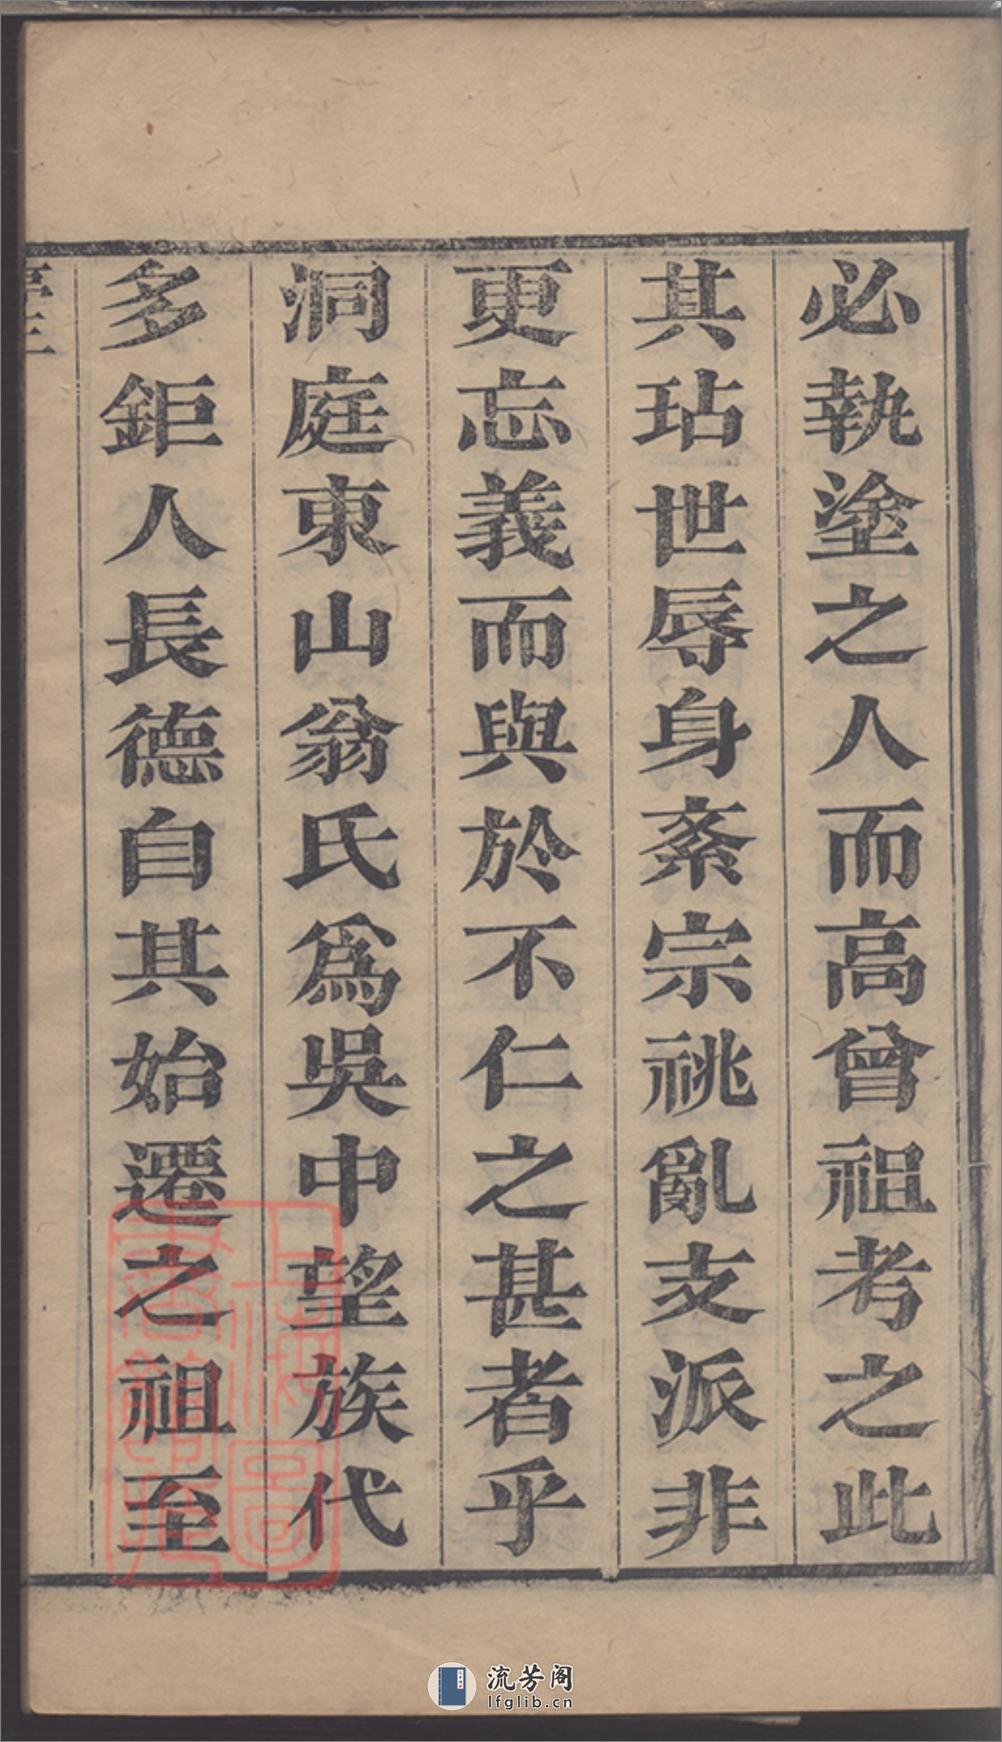 必執塗之人而高曾祖考之此
其玷世辱身紊宗祧亂支派非
更忘義而與於不仁之甚者乎
洞庭東山翁氏爲吳中望族代
多鉅人長德自其始遷之祖至
上海圖書館藏
流芳阁
lfglib.cn